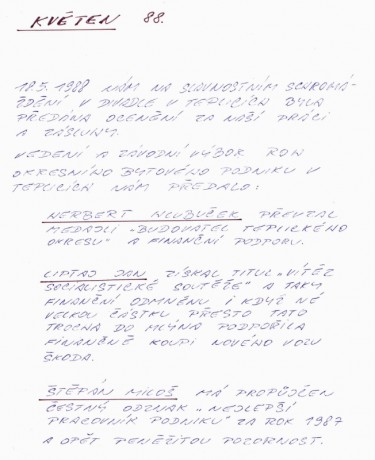 KVĚTEN 88.
18.5. 1988 NÁM NA SLAVNOSTNÍM SHROMÁ-
ŽDĚNÍ V DIVADLE V TEPLICÍCH BYLA
PŘEDÁNA OCENĚNÍ ZA NAŠÍ PRÁCI
A ZÁSLUHY.
VEDENÍ A ZÁVODNÍ VÝBOR ROH
OKRESNÍHO BYTOVÉHO PODNIKU V
TEPLICÍCH NÁM PŘEDALO:
HERBERT HLUBUČEK PŘEVZAL
MEDAJLI „BUDOVATEL TEPLICKÉHO
OKRESU" A FINANČNÍ PODPORU.
LIPTAJ JAN ZÍSKAL TITUL „VÍTĚZ
SOCIALISTICKÉ SOUTĚŽE" A TAKY
FINANČNÍ ODMNĚNU I KDYŽ NE
VELKOU ČÁSTKU PŘESTO TATO
TROCHA DO MLÝNA PODPOŘILA
FINANČNĚ KOUPI NOVÉHO VOZU
ŠKODA.
ŠTĚPÁN MILOŠ MÁ PROPŮJČEN
ČESTNÝ ODZNAK „NEJLEPŠÍ
PRACOVNÍK PODNIKU" ZA ROK 1987
A OPĚT PENĚŽITOU POZORNOST.